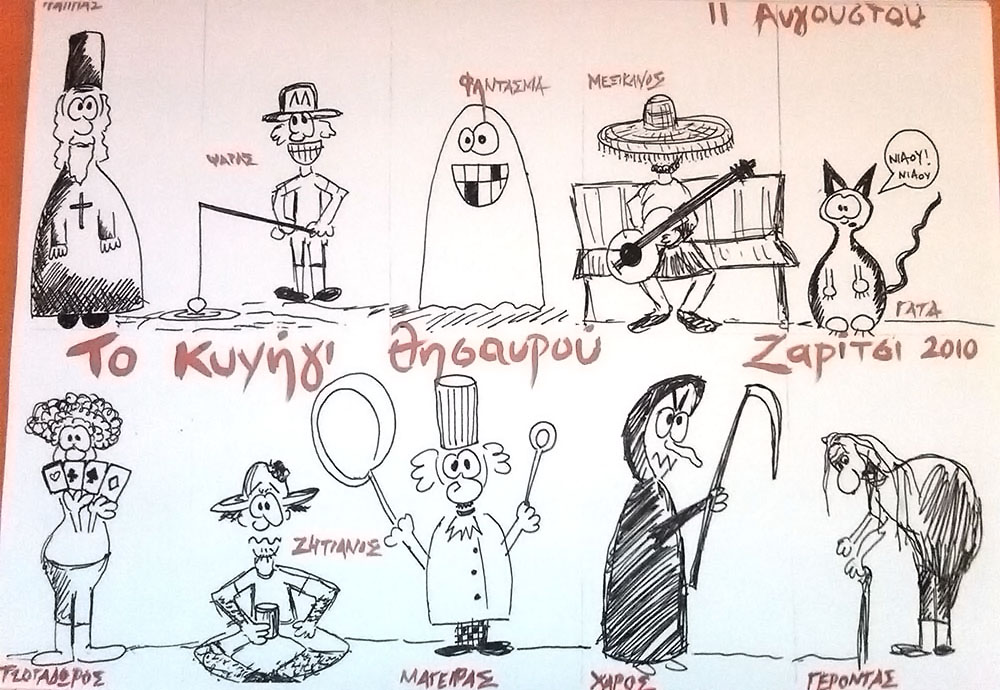 ΠΑΠΠΑΣ
11 Αυγούστου
ΦΑΝΤΑΣΜΑ
ΜΕΞΙΚΑΝΟΣ
ΨΑΡΑΣ
ΝΙΑΟΥ!
ΝΙΑΟΥ
ΓΑΤΑ
Το Κυνήγι Θησαυρού Ζαρίτσι 2010
ΖΗΤΙΑΝΟΣ
ΤΖΟΓΑΔΩΡΟΣ
ΜΑΓΕΙΡΑΣ
ΧΑΡΟΣ
ΓΕΡΟΝΤΑΣ